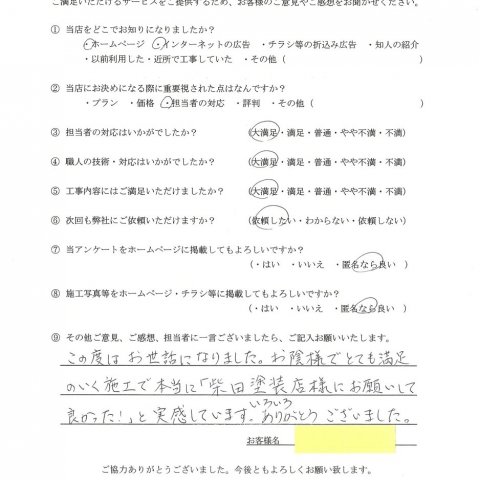 満足いただけるサービスをご提供するため、お客様のご意見やご感想をお聞かせください。
① 当店をどこでお知りになりましたか？
・ホームページ ・インターネットの広告 ・チラシ等の折込み広告 ・知人の紹介
・以前利用した・近所で工事していた ・その他（ ）
② 当店にお決めになる際に重要視された点はなんですか？
・プラン ・価格 ・担当者の対応 ・評判 ・その他（ ）
③ 担当者の対応はいかがでしたか？ （大満足・満足・普通・やや不満・不満）
④ 職人の技術・対応はいかがでしたか？ （大満足・満足・普通・やや不満・不満）
⑤ 工事内容にはご満足いただけましたか？ （大満足・満足・普通・やや不満・不満）
⑥ 次回も弊社にご依頼いただけますか？ （依頼したい・わからない・依頼しない）
⑦ 当アンケートをホームページに掲載してもよろしいですか？
（・はい ・いいえ ・匿名なら良い ）
⑧ 施工写真等をホームページ・チラシ等に掲載してもよろしいですか？
（・はい ・いいえ ・匿名なら良い ）
⑨ その他ご意見、ご感想、担当者に一言ございましたら、ご記入お願いいたします。
この度はお世話になりました。お陰様でとても満足
のいく施工で本当に「柴田塗装店様にお願いして
良かった！」と実感しています。いろいろありがとうございました。
お客様名
ご協力ありがとうございました。今後ともよろしくお願い致します。